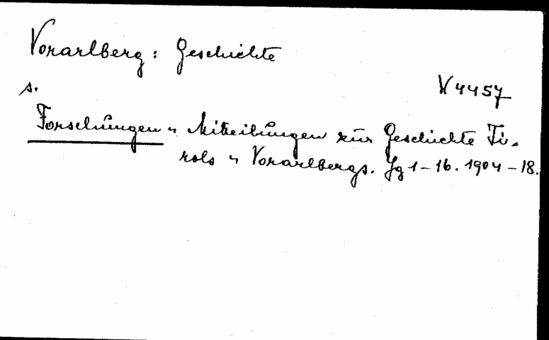 Vorarlberg: Geschichte
V 4457
s.
Forschungen u Mitteilungen zur Geschichte Ti-
rols u Vorarlbergs. Jg 1-16. 1904-18.